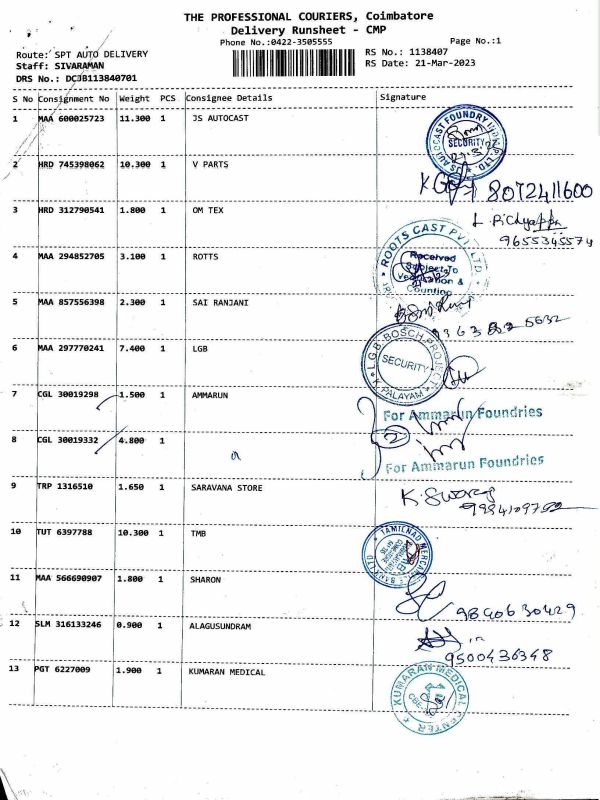 THE PROFESSIONAL COURIERS, Coimbatore
Delivery Runsheet - CMP
Phone No.:0422-3505555 Page No.:1
Route: SPT AUTO DELIVERY RS No.: 1138407
Staff: SIVARAMAN RS Date: 21-Mar-2023
DRS No.: DCJB113840701
S No Consignment No Weight PCS Consignee Details Signature
1 MAA 600025723 11.300 1 JS AUTOCAST
JS AUTOCAST FOUNDRY INDIA LTD
SECURITY
2 HRD 745398062 10.300 1 V PARTS
8072411600
3 HRD 312790541 1.800 1 OM TEX
9655345574
4 MAA 294852705 3.100 1 ROTTS
ROOTS CAST PVT LTD
Received
Subject To
Verification &
Counting
5 MAA 857556398 2.300 1 SAI RANJANI
6 MAA 297770241 7.400 1 LGB
L.G.B. BOSCH PROJECT
SECURITY
K. PALAYAM
7 CGL 30019298 1.500 1 AMMARUN
For Ammarun Foundries
8 CGL 30019332 4.800 1
2
a
For Ammarun Foundries
9 TRP 1316510 1.650 1 SARAVANA STORE
10 TUT 6397788 10.300 1 TMB
TAMILNAD MERCANTILE BANK LTD
11 MAA 566690907 1.800 1 SHARON
9840630429
12 SLM 316133246 0.900 1 ALAGUSUNDRAM
9500436348
13 PGT 6227009 1.900 1 KUMARAN MEDICAL
KUMARAN MEDICAL CENTER